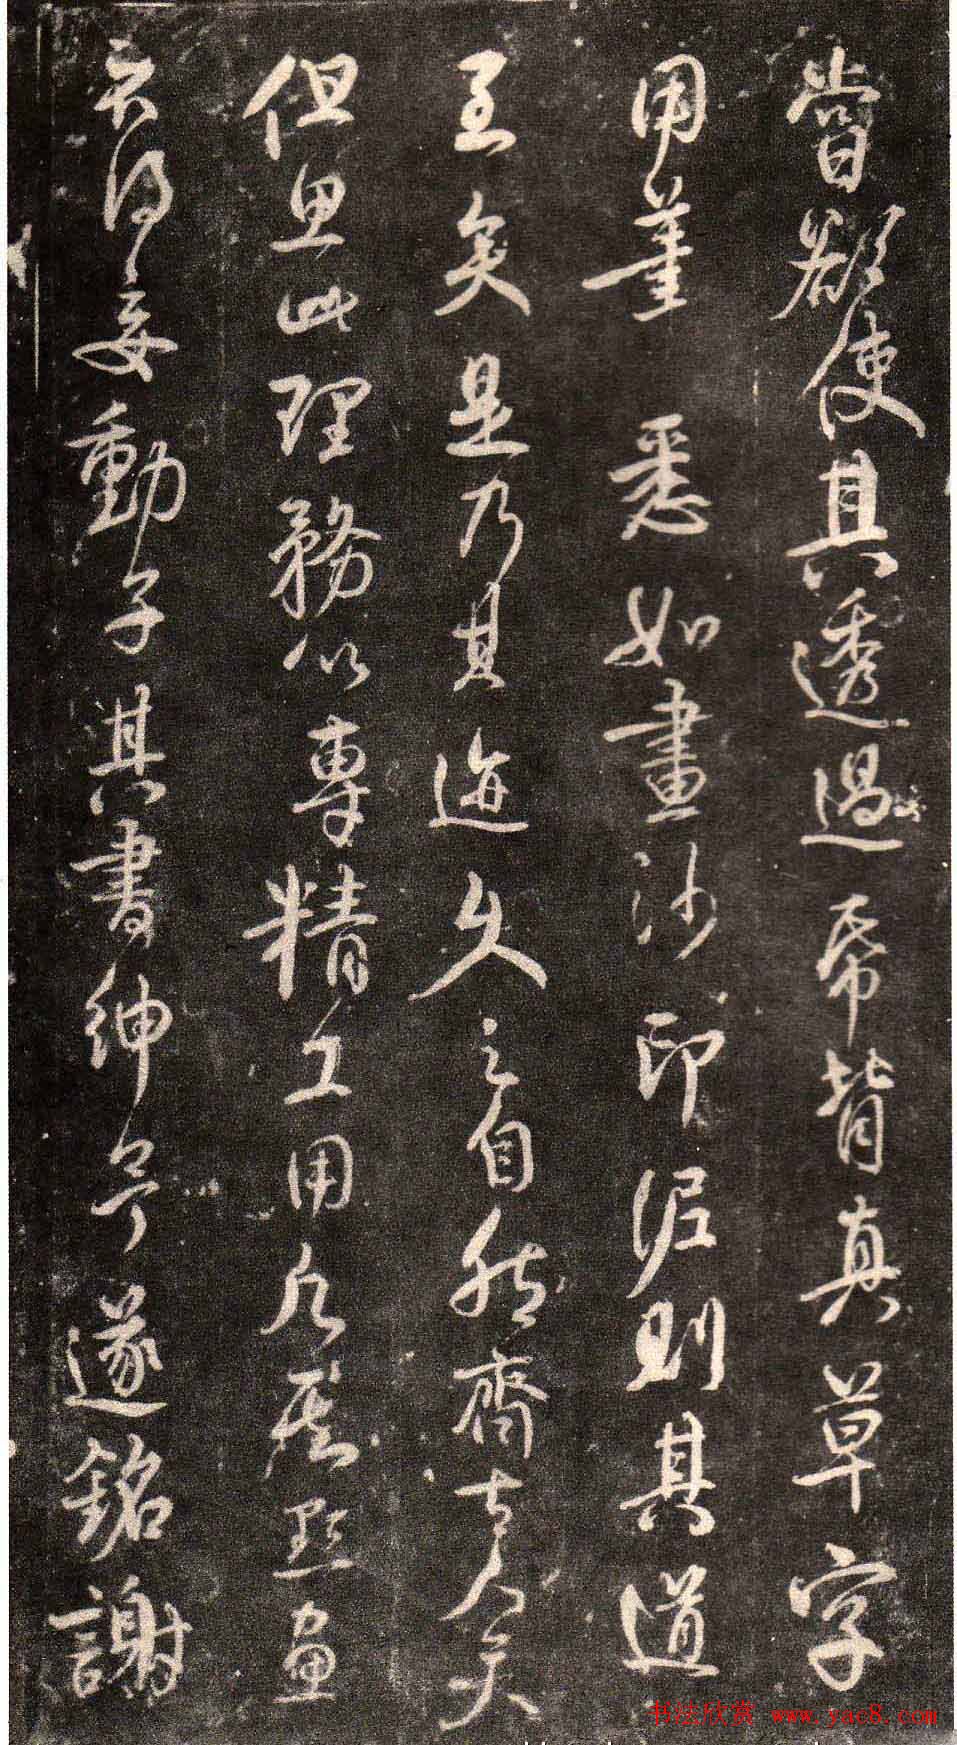 嘗欲使其透過帋背真草字
用筆悉如畫沙印泥則其道
至矣是乃其迹久之自然齊古人矣
但思此理務以專精工用點畫
不得妄動子其書紳予遂銘謝
书法欣赏 www.yac8.com